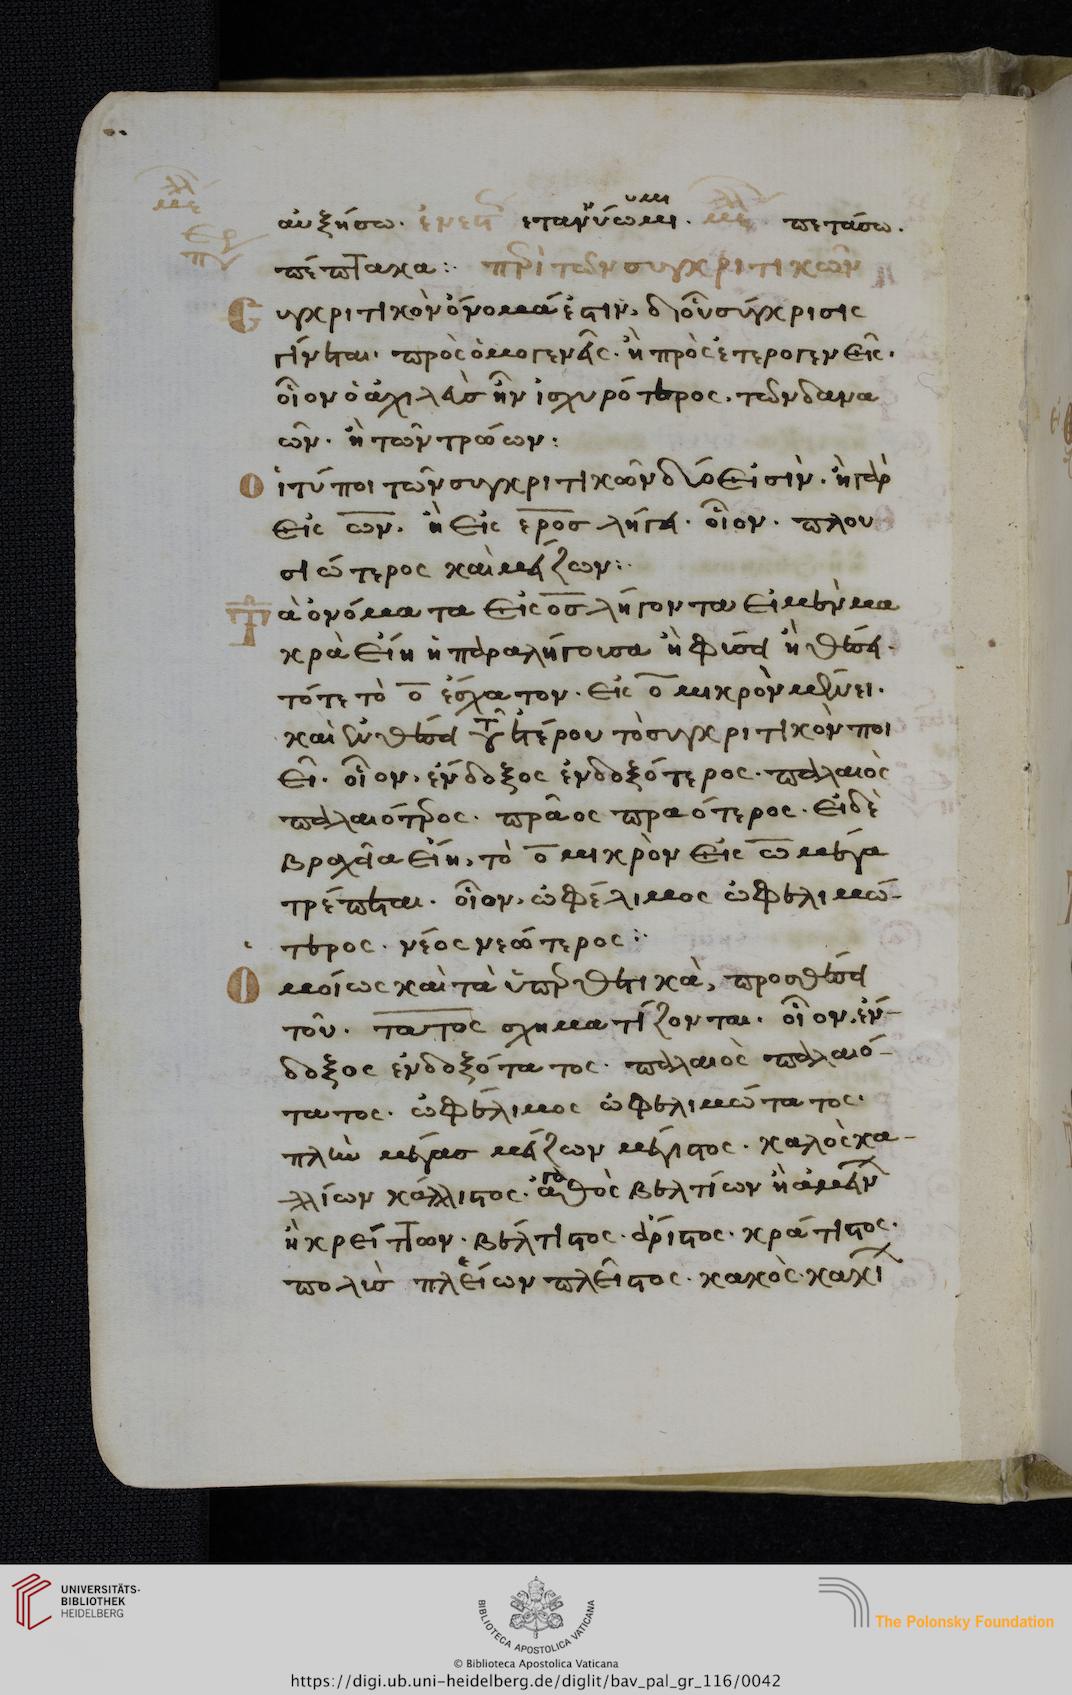 αὐξήσω. ἐνεστ ετανύω. μέ πετάσω.
πέπτακα: περὶ τῶν συγκριτικῶν
Συγκριτικὸν ὄνομά ἐστιν, δι' οὗ σύγκρισις
γίνεται. πρὸς ὁμογενεῖς. ἢ πρὸς ἑτερογενεῖς.
οἷον ὁ ἀχιλεὺς ἦν ἰσχυρότερος. τῶν δανα
ῶν. ἢ τῶν τρώων:
Οἱ τύποι τῶν συγκριτικῶν δύο εἰσίν. ἢ γὰρ
εἰς ων. ἢ εἰς ερος λήγει. οἷον. πλου
σιώτερος καὶ μείζων:
Τὰ ὀνόματα εἰς ος λήγοντα εἰ μὲν μα
κρὰ εἴη ἡ παραλήγουσα ἢ φύσει ἢ θέσει.
τότε τὸ ο ἔσχατον. εἰς ο μικρὸν μένει.
καὶ ἐν θέσει τοῦ τέρου τὸ συγκριτικὸν ποι
εῖ. οἷον. ἔνδοξος ἐνδοξότερος. παλαιὸς
παλαιότερος. πρᾶος πραότερος. εἰ δὲ
βραχεῖα εἴη, τὸ ο μικρὸν εἰς ω μέγα
τρέπεται. οἷον. ὠφέλιμος ὠφελιμώ-
τερος. νέος νεώτερος:
Ὁμοίως καὶ τὰ ὑπερθετικὰ, προσθέσει
τοῦ. τατος σχηματίζονται. οἷον. ἔν-
δοξος ἐνδοξότατος. παλαιὸς παλαιό-
τατος. ὠφέλιμος ὠφελιμώτατος.
πλὴν μέγας μείζων μέγιστος. καλὸς κα-
λλίων κάλλιστος. ἀγαθὸς βελτίων ἢ ἀμείνων
ἢ κρείττων. βέλτιστος. ἄριστος. κράτιστος.
πολὺς πλείων πλεῖστος. κακὸς. κακί
UNIVERSITÄTS-
BIBLIOTHEK
HEIDELBERG
BIBLIOTECA APOSTOLICA VATICANA
The Polonsky Foundation
© Biblioteca Apostolica Vaticana
https://digi.ub.uni-heidelberg.de/diglit/bav_pal_gr_116/0042